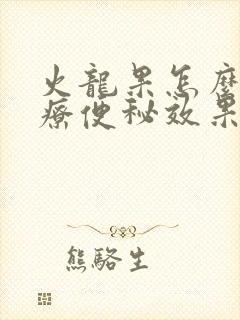 火龍果怎麼
療便秘效果
熊駱生